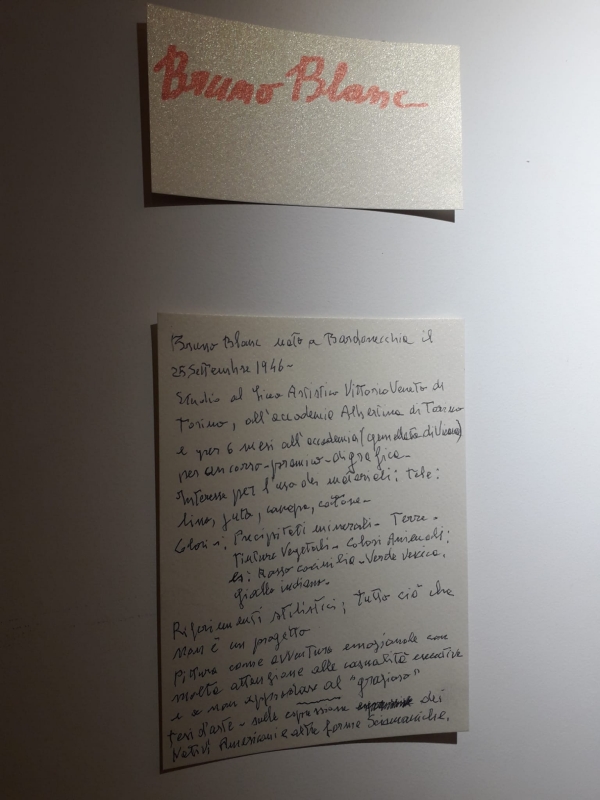 Bruno Blanc
Bruno Blanc nato a Bardonecchia il
25 Settembre 1946-
Studio al Liceo Artistico Vittorio Veneto di
Torino, all'accademia Albertina di Torino
e per 6 mesi all'accademia di Vienna)
per un corso-premio-di grafica-
Interesse per l'uso dei materiali: tele:
lino, juta, canapa, cotone-
Colori: Precipitati minerali- Terre-
Tinture Vegetali- Colori Animali:
es: Rosso cocciniglia-Verde vescica,
giallo indiano-
Riferimenti stilistici; tutto ciò che
non è un progetto
Pittura come avventura emozionale con
molta attenzione alle casualità
e a non approdare al "grazioso"
Tesi d'arte- sulle espressione dei
Nativi Americani e altre forme Sciamaniche.